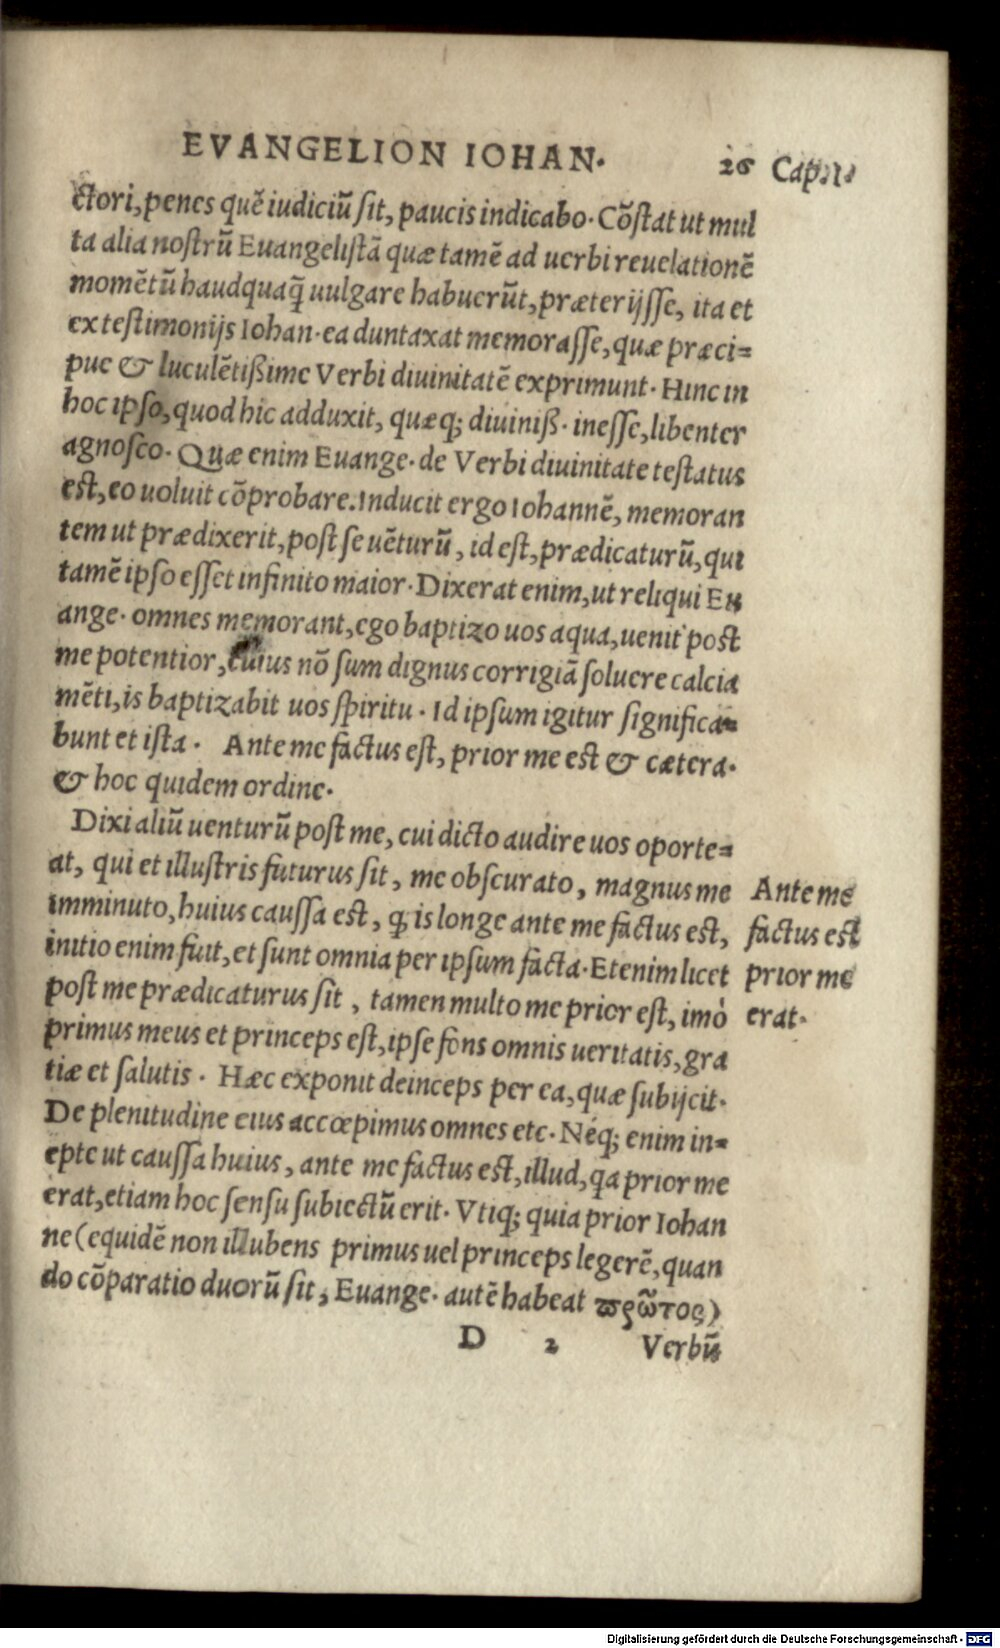 EVANGELION IOHAN. 26 Cap. I.
ctori, penes quẽ iudiciũ sit, paucis indicabo. Cõstat ut mul
ta alia nostrũ Euangelistã quæ tamẽ ad uerbi reuelationẽ
momẽtũ haudquaq̃ uulgare habuerũt, præterijsse, ita et
ex testimonijs Iohan. ea duntaxat memorasse, quæ præci=
pue & luculẽtißime Verbi diuinitatẽ exprimunt. Hinc in
hoc ipso, quod hic adduxit, quæq; diuiniß. inesse, libenter
agnosco. Quæ enim Euange. de Verbi diuinitate testatus
est, eo uoluit cõprobare. Inducit ergo Iohannẽ, memoran
tem ut prædixerit, post se uẽturũ, id est, prædicaturũ, qui
tamẽ ipso esset infinito maior. Dixerat enim, ut reliqui Eu
ange. omnes memorant, ego baptizo uos aqua, uenit post
me potentior, cuius nõ sum dignus corrigiã soluere calcia
mẽti, is baptizabit uos spiritu. Id ipsum igitur significa=
bunt et ista. Ante me factus est, prior me est & cætera.
& hoc quidem ordine.
Dixi aliũ uenturũ post me, cui dicto audire uos oporte=
at, qui et illustris futurus sit, me obscurato, magnus me
imminuto, huius caussa est, ꝙ is longe ante me factus est,
initio enim fuit, et sunt omnia per ipsum facta. Etenim licet
post me prædicaturus sit, tamen multo me prior est, imò
primus meus et princeps est, ipse fons omnis ueritatis, gra
tiæ et salutis. Hæc exponit deinceps per ea, quæ subijcit.
De plenitudine eius accœpimus omnes etc. Neq; enim in=
epte ut caussa huius, ante me factus est, illud, qa prior me
erat, etiam hoc sensu subiectũ erit. Vtiq; quia prior Iohan
ne (equidẽ non illubens primus uel princeps legerẽ, quan
do cõparatio duorũ sit, Euange. autẽ habeat πρῶτος)
D 2 Verbũ
Ante me
factus est
prior me
erat.
Digitalisierung gefördert durch die Deutsche Forschungsgemeinschaft - DFG